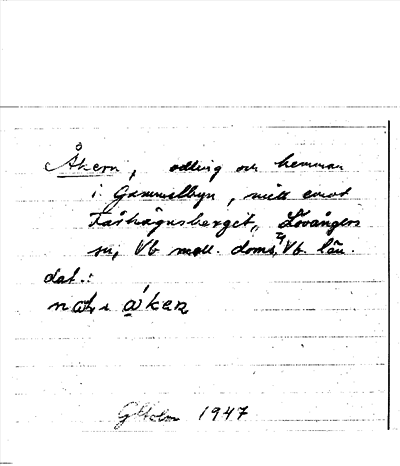 Åkern, odling och hemman
i Gammelbyn, mitt emot
Fårhägnsberget, Lövångers
sn, Vb mell. doms, Vb. län.
dat.:
åkeṇ
GHolm 1947